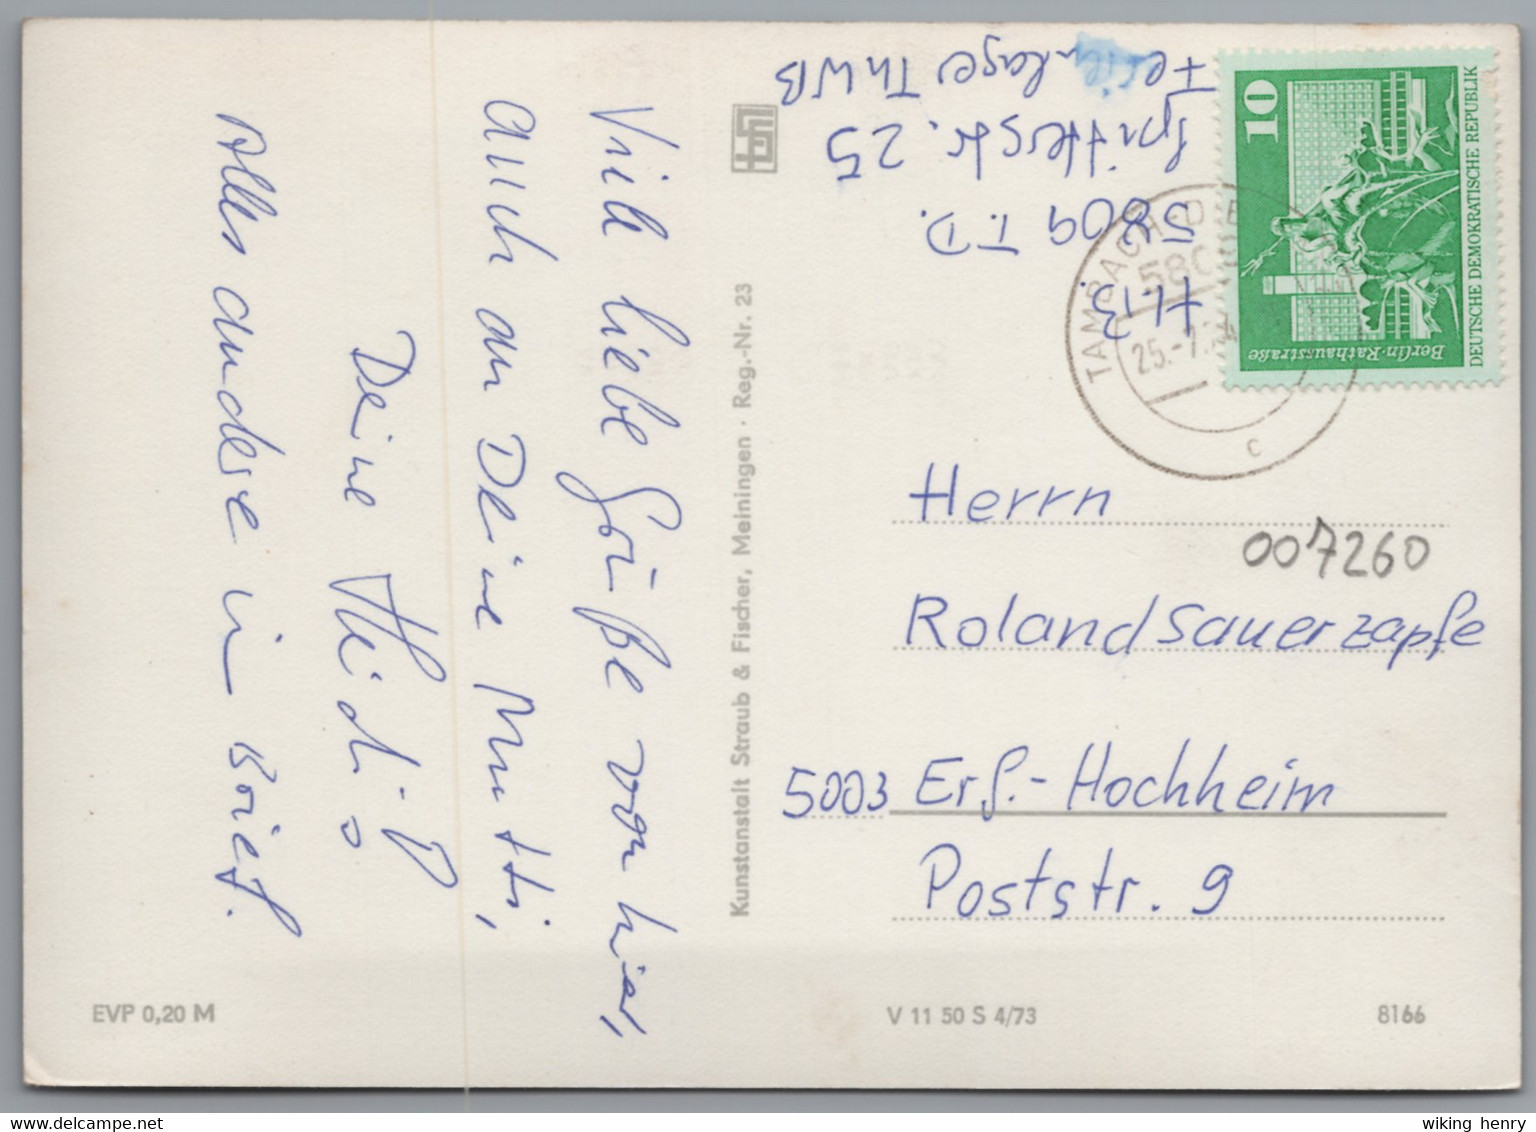 Viele liebe Grüße von hier,
auch an Deine Mutti,
Deine Heidi
Alles andere in Brief.
Kunstanstalt Straub & Fischer, Meiningen · Reg.-Nr. 23
H.B.
5809 T.D.
Spitterstr. 25
Ferienlager ThWB
TAMBACH-DIE
580
25.-7.74
c
10
Berlin · Rathausstraße
DEUTSCHE DEMOKRATISCHE REPUBLIK
Herrn
007260
Roland Sauerzapfe
5003 Erf.-Hochheim
Poststr. 9
EVP 0,20 M
V 11 50 S 4/73
8166
wiking henry